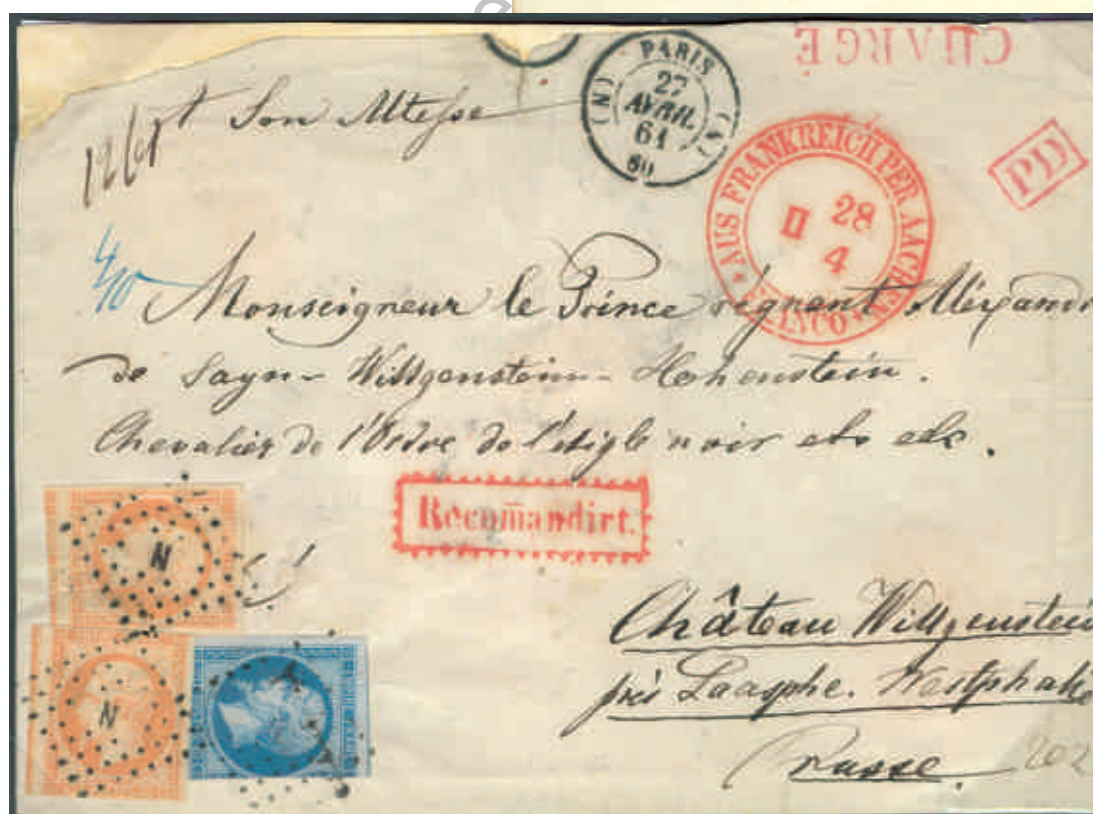 CHARGÉ
PARIS
27
AVRIL
61
(N) (N)
60
PD
AUS FRANKREICH PER AACHEN
28
II
4
FRANCO
A Son Altesse
4/10
Monseigneur le Prince régnant Alexandre
de Sayn-Wittgenstein-Hohenstein.
Chevalier de l'Ordre de l'Aigle noir etc etc.
Recomandirt.
N
N
Château Wittgenstein
près Laasphe. Westphalie
Prusse
202